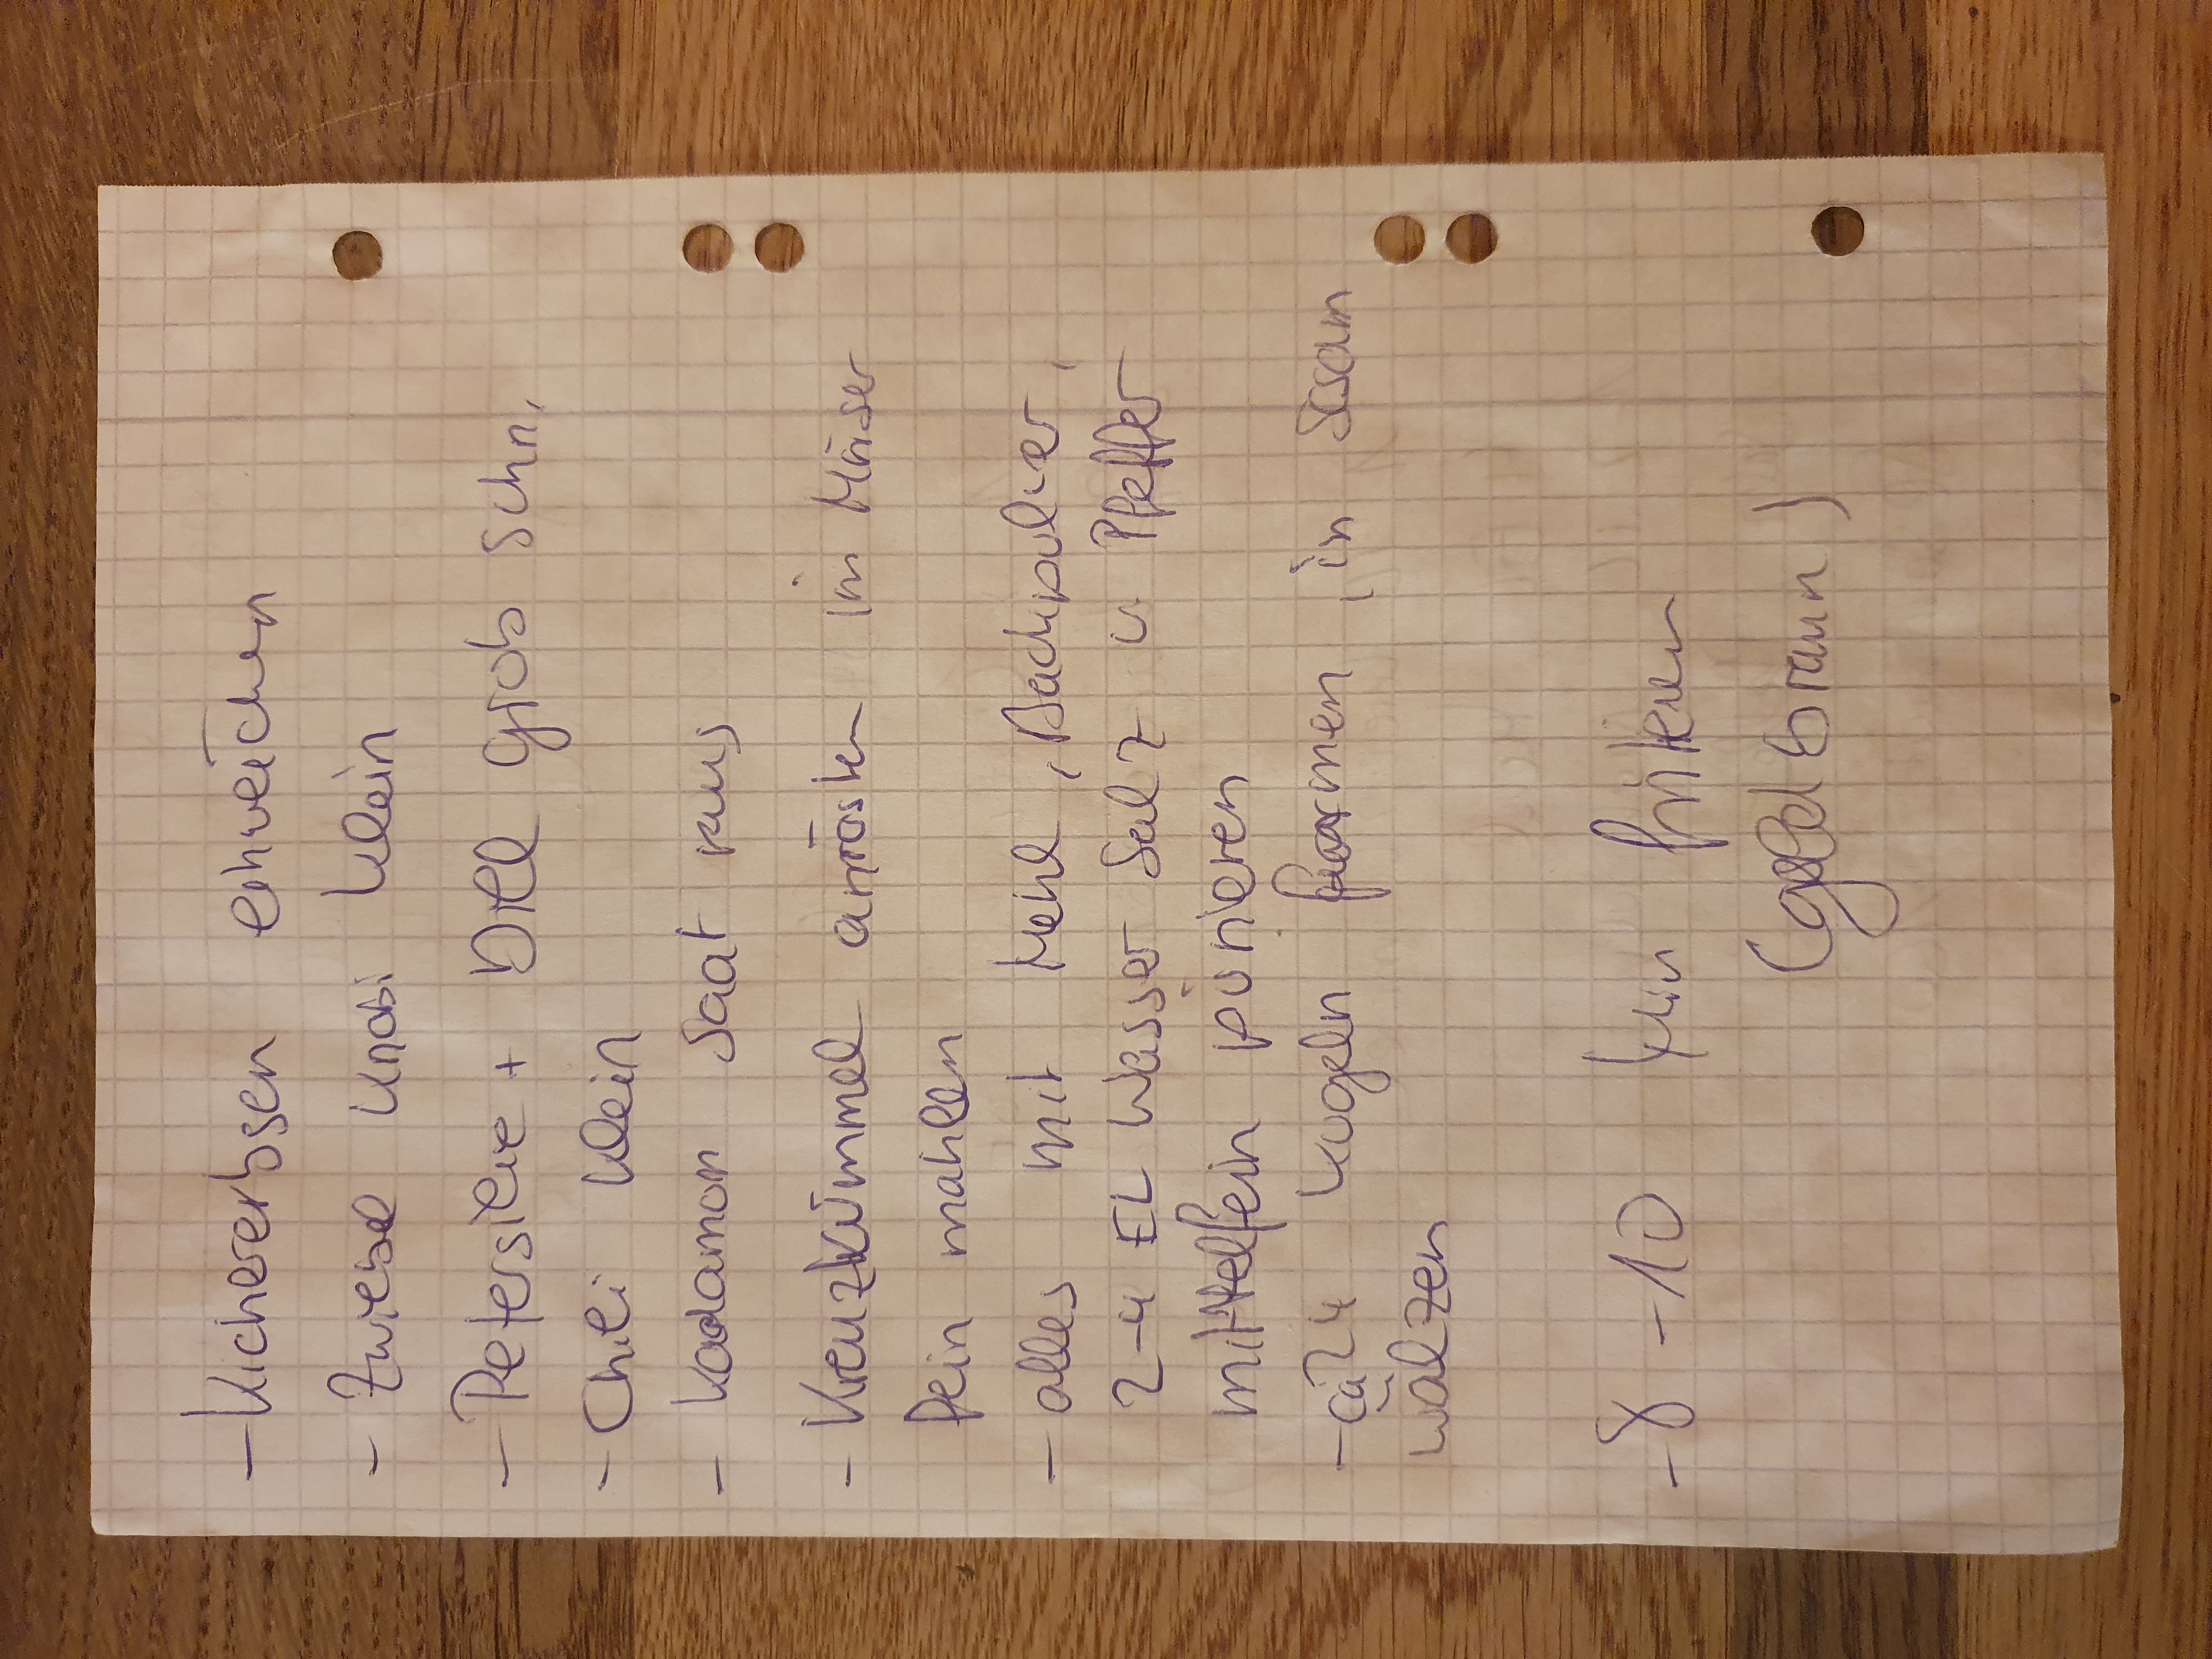 - Kichererbsen einweichen
- Zwiebel Knobi klein
- Petersilie + Dill grob schn.
- Chili klein
- Kadamon Saat raus
- Kreuzkümmel anrösten im Mörser
fein mahlen
- alles mit Mehl, Backpulver,
2-4 EL Wasser Salz u Pfeffer
mittelfein pürieren
- ca 24 Kugeln formen, in Sesam
wälzen
- 8 - 10 Min frittieren
(goldbraun)